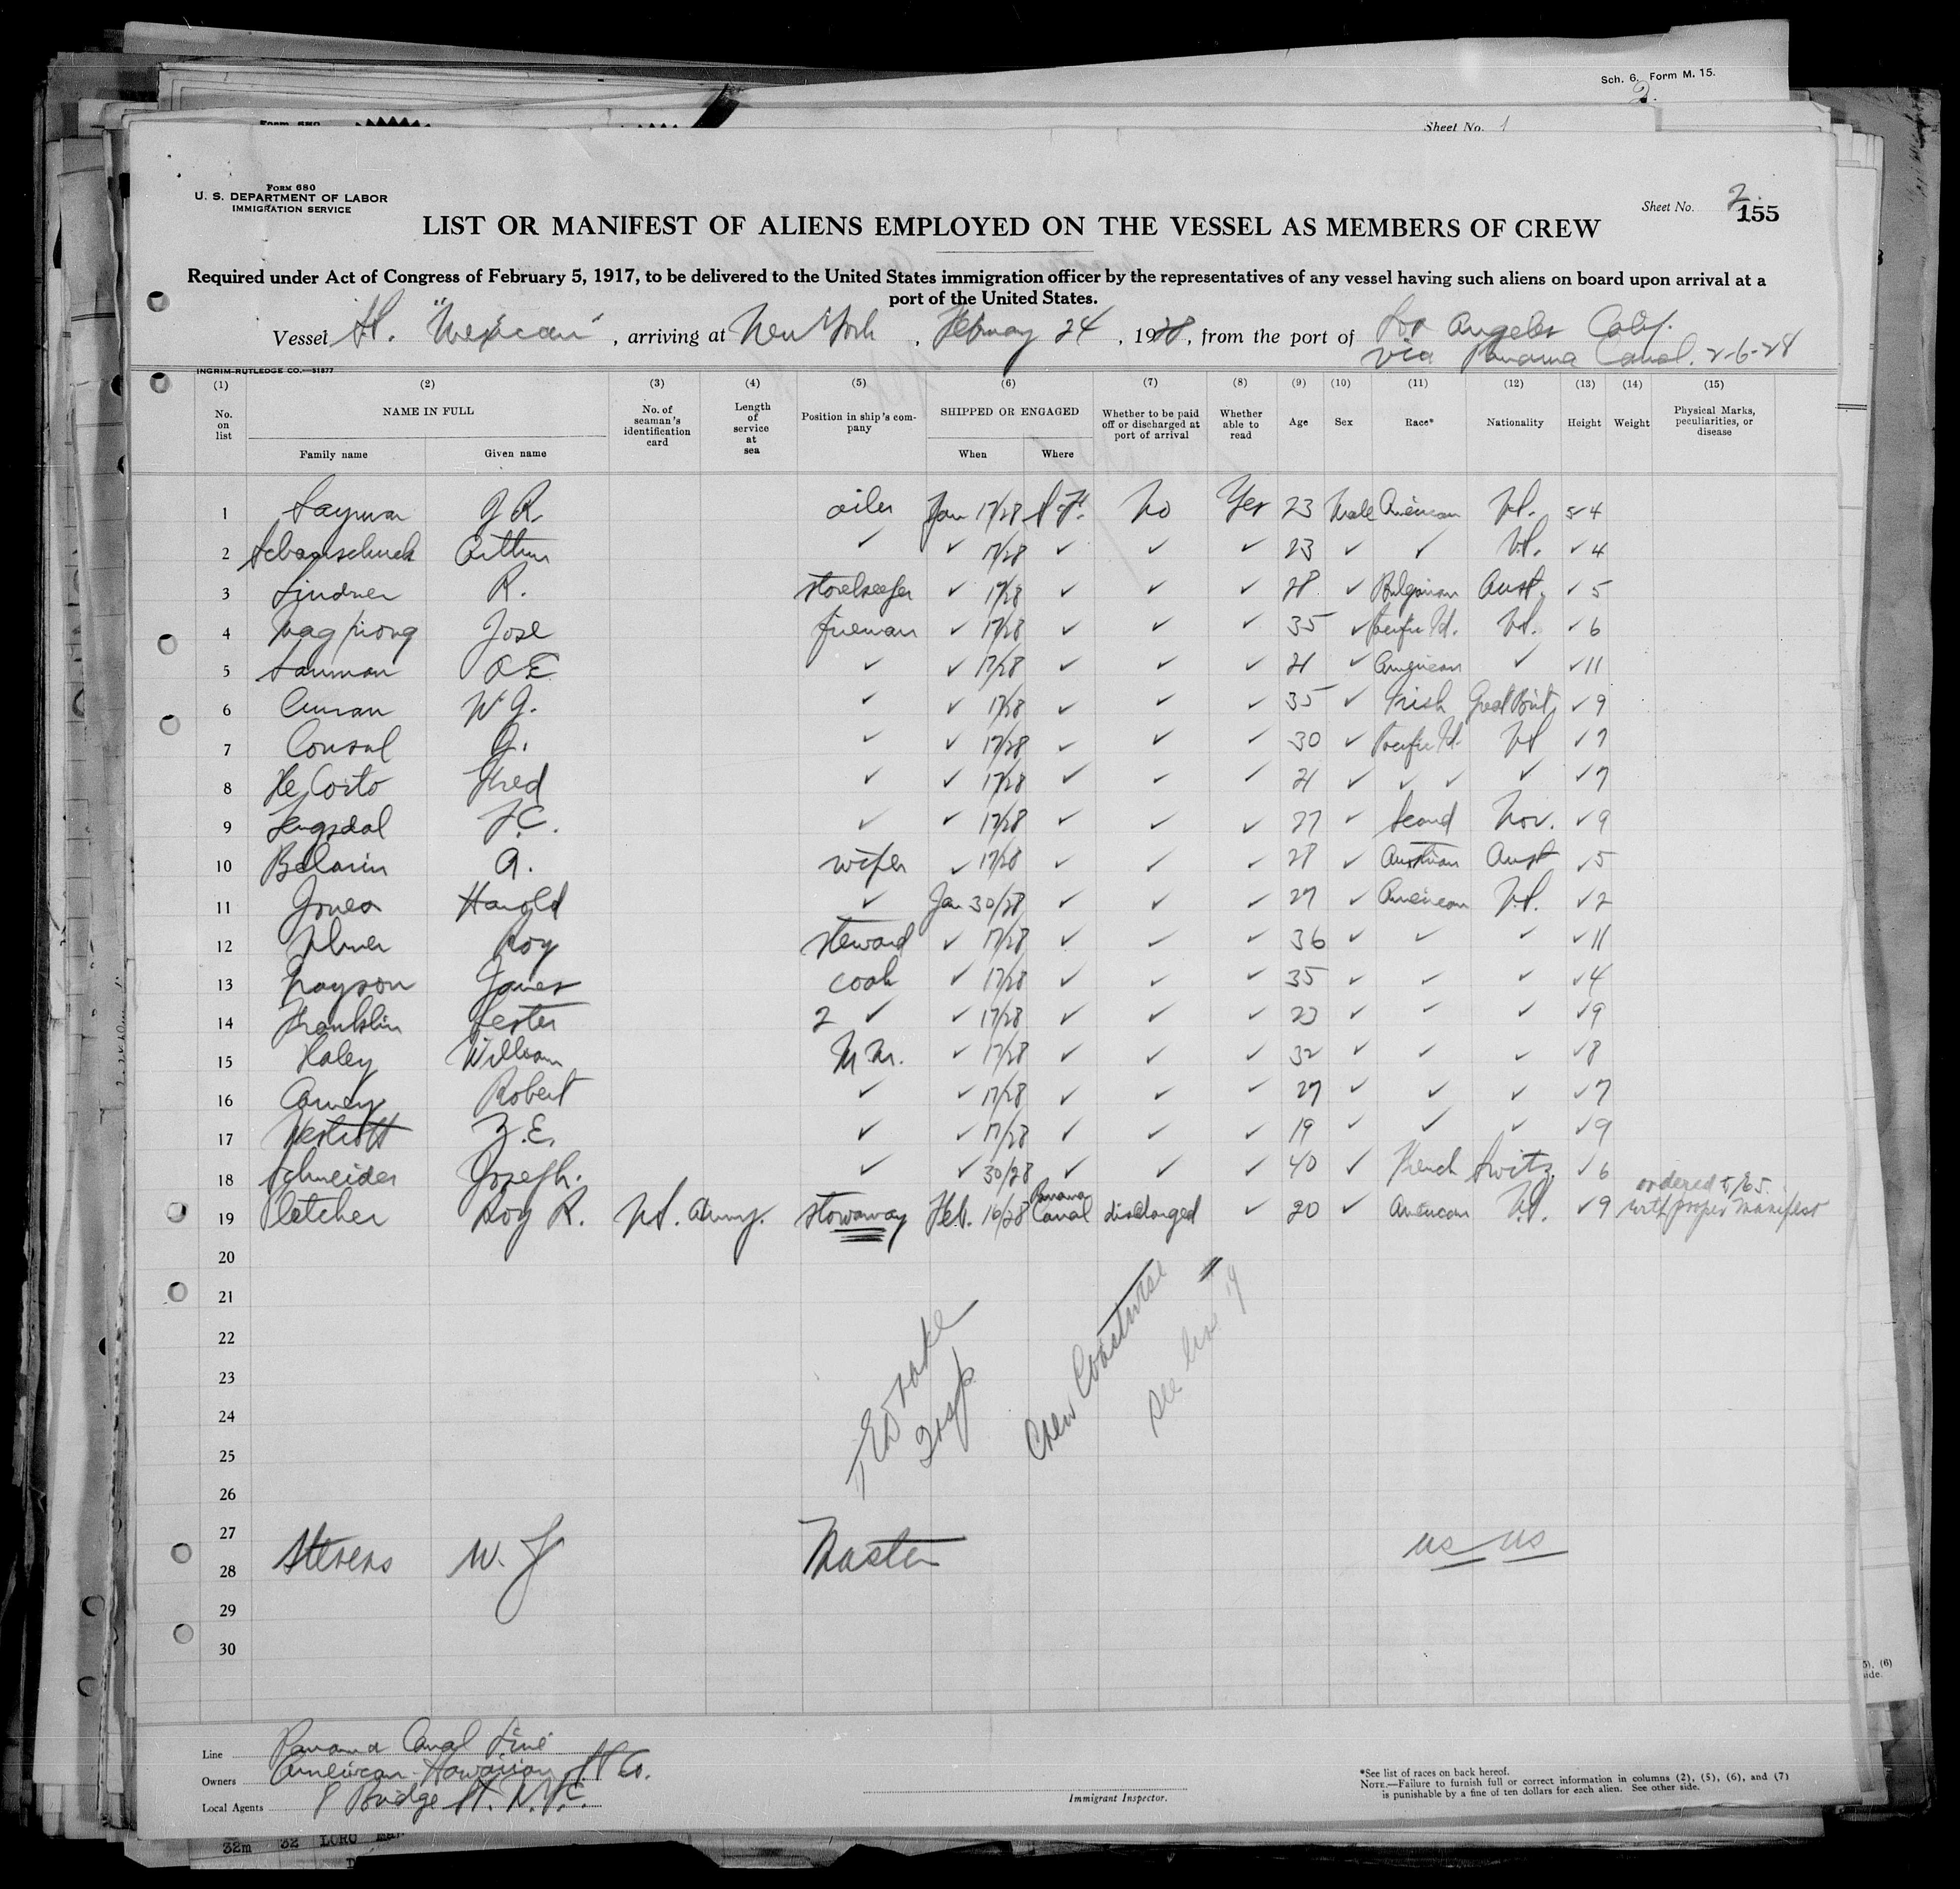 Sch. 6. Form M. 15.
2.
Sheet No. 1
Form 680
U. S. DEPARTMENT OF LABOR
IMMIGRATION SERVICE
Sheet No. 2.
155
LIST OR MANIFEST OF ALIENS EMPLOYED ON THE VESSEL AS MEMBERS OF CREW
Required under Act of Congress of February 5, 1917, to be delivered to the United States immigration officer by the representatives of any vessel having such aliens on board upon arrival at a
port of the United States.
Vessel SS. "Mexican", arriving at New York, February 24, 1928, from the port of Los Angeles Calif.
via Panama Canal. 2-6-28
INGRIM-RUTLEDGE CO.—51877
(1) (2) (3) (4) (5) (6) (7) (8) (9) (10) (11) (12) (13) (14) (15)
No. on list NAME IN FULL Family name Given name No. of seaman's identification card Length of service at sea Position in ship's company SHIPPED OR ENGAGED When Where Whether to be paid off or discharged at port of arrival Whether able to read Age Sex Race* Nationality Height Weight Physical Marks, peculiarities, or disease
1 Layman J R. oiler Jan 17/28 S.F. No Yes 23 Male American US. 5 4
2 Arthur ✓ ✓ 17/28 ✓ ✓ ✓ 23 ✓ ✓ US. ✓ 4
3 Lindner R. storekeeper ✓ 17/28 ✓ ✓ ✓ 28 ✓ Bulgarian Aust. ✓ 5
4 Jose fireman ✓ 17/28 ✓ ✓ ✓ 35 ✓ Pacific Isl. US. ✓ 6
5 Lauman ✓ ✓ 17/28 ✓ ✓ ✓ 21 ✓ American ✓ ✓ 11
6 Curran W J. ✓ ✓ 17/28 ✓ ✓ ✓ 35 ✓ Irish Great Brit. ✓ 9
7 Consul G. ✓ ✓ 17/28 ✓ ✓ ✓ 30 ✓ Pacific Isl. US ✓ 7
8 De Costo Fred ✓ ✓ 17/28 ✓ ✓ ✓ 21 ✓ ✓ ✓ ✓ ✓ 7
9 Lengsdal J.C. ✓ ✓ 17/28 ✓ ✓ ✓ 27 ✓ Scand Nor. ✓ 9
10 Belarin A. wiper ✓ 17/28 ✓ ✓ ✓ 28 ✓ Austrian Aust ✓ 5
11 Jones Harold ✓ Jan 30/28 ✓ ✓ ✓ 27 ✓ American US. ✓ 2
12 Roy steward ✓ 17/28 ✓ ✓ ✓ 36 ✓ ✓ ✓ ✓ 11
13 James cook ✓ 17/28 ✓ ✓ ✓ 35 ✓ ✓ ✓ ✓ 4
14 Franklin Lester 2 ✓ ✓ 17/28 ✓ ✓ ✓ 23 ✓ ✓ ✓ ✓ 9
15 Haley William M M. ✓ 17/28 ✓ ✓ ✓ 32 ✓ ✓ ✓ ✓ 8
16 Carney Robert ✓ ✓ 17/28 ✓ ✓ ✓ 27 ✓ ✓ ✓ ✓ 7
17 Z.E. ✓ ✓ 17/28 ✓ ✓ ✓ 19 ✓ ✓ ✓ ✓ 9
18 Schneider Joseph. ✓ ✓ 30/28 ✓ ✓ ✓ 40 ✓ French Switz. ✓ 6
19 Pletcher Roy R. US. Army. stowaway Feb. 16/28 Panama Canal discharged ✓ 20 ✓ American US. ✓ 9 ordered to
with proper manifest
20
21
22
23
24
25
26
27
28 Stevens W. J Master US US
29
30
Crew Coastwise
see line 19
Line Panama Canal Line
Owners American-Hawaiian SS Co.
Local Agents 8 Bridge St. N.Y.C.
Immigrant Inspector.
*See list of races on back hereof.
NOTE.—Failure to furnish full or correct information in columns (2), (5), (6), and (7)
is punishable by a fine of ten dollars for each alien. See other side.
32m 32 LORO